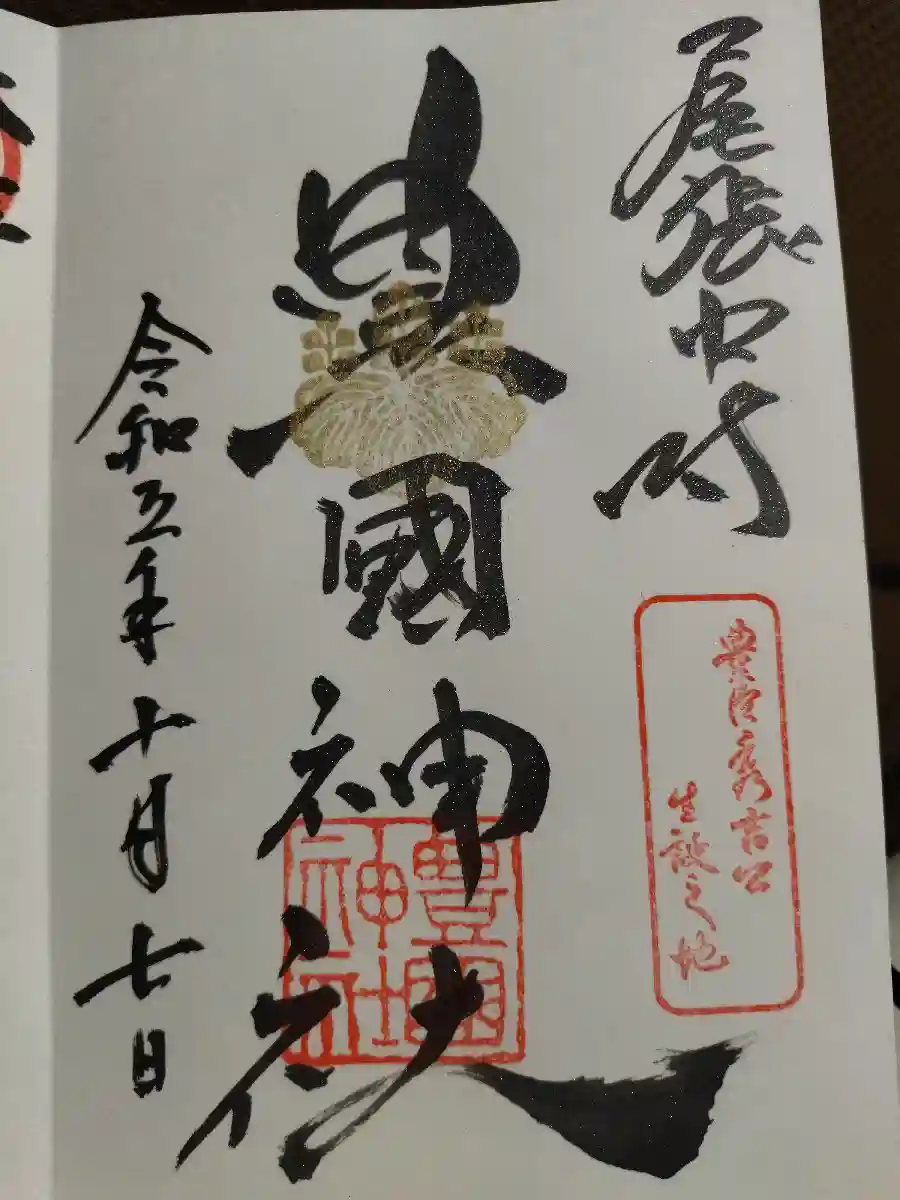 尾張中村
豊臣秀吉公
生誕之地
豊國神社
豊國神社
令和五年十月七日